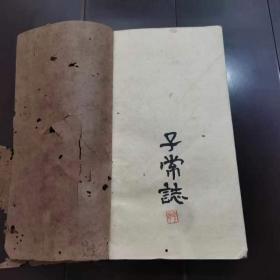 子常誌